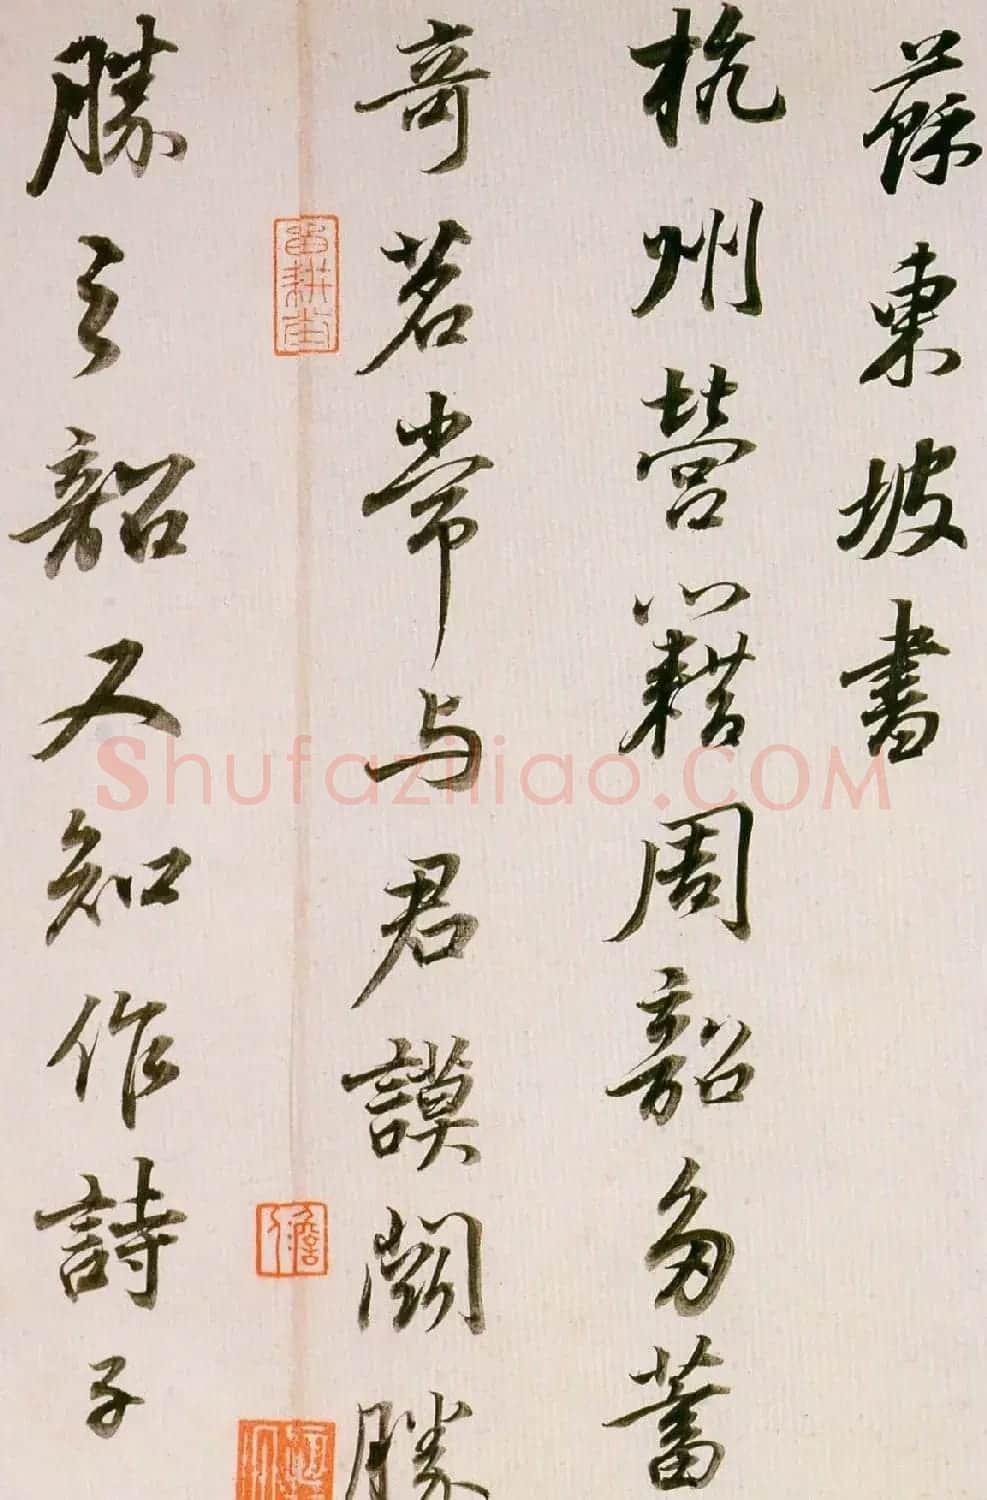 蘇東坡書
杭州營籍周韶多蓄
奇茗常与君謨鬪勝
勝之韶又知作詩子
Shufaziliao.COM